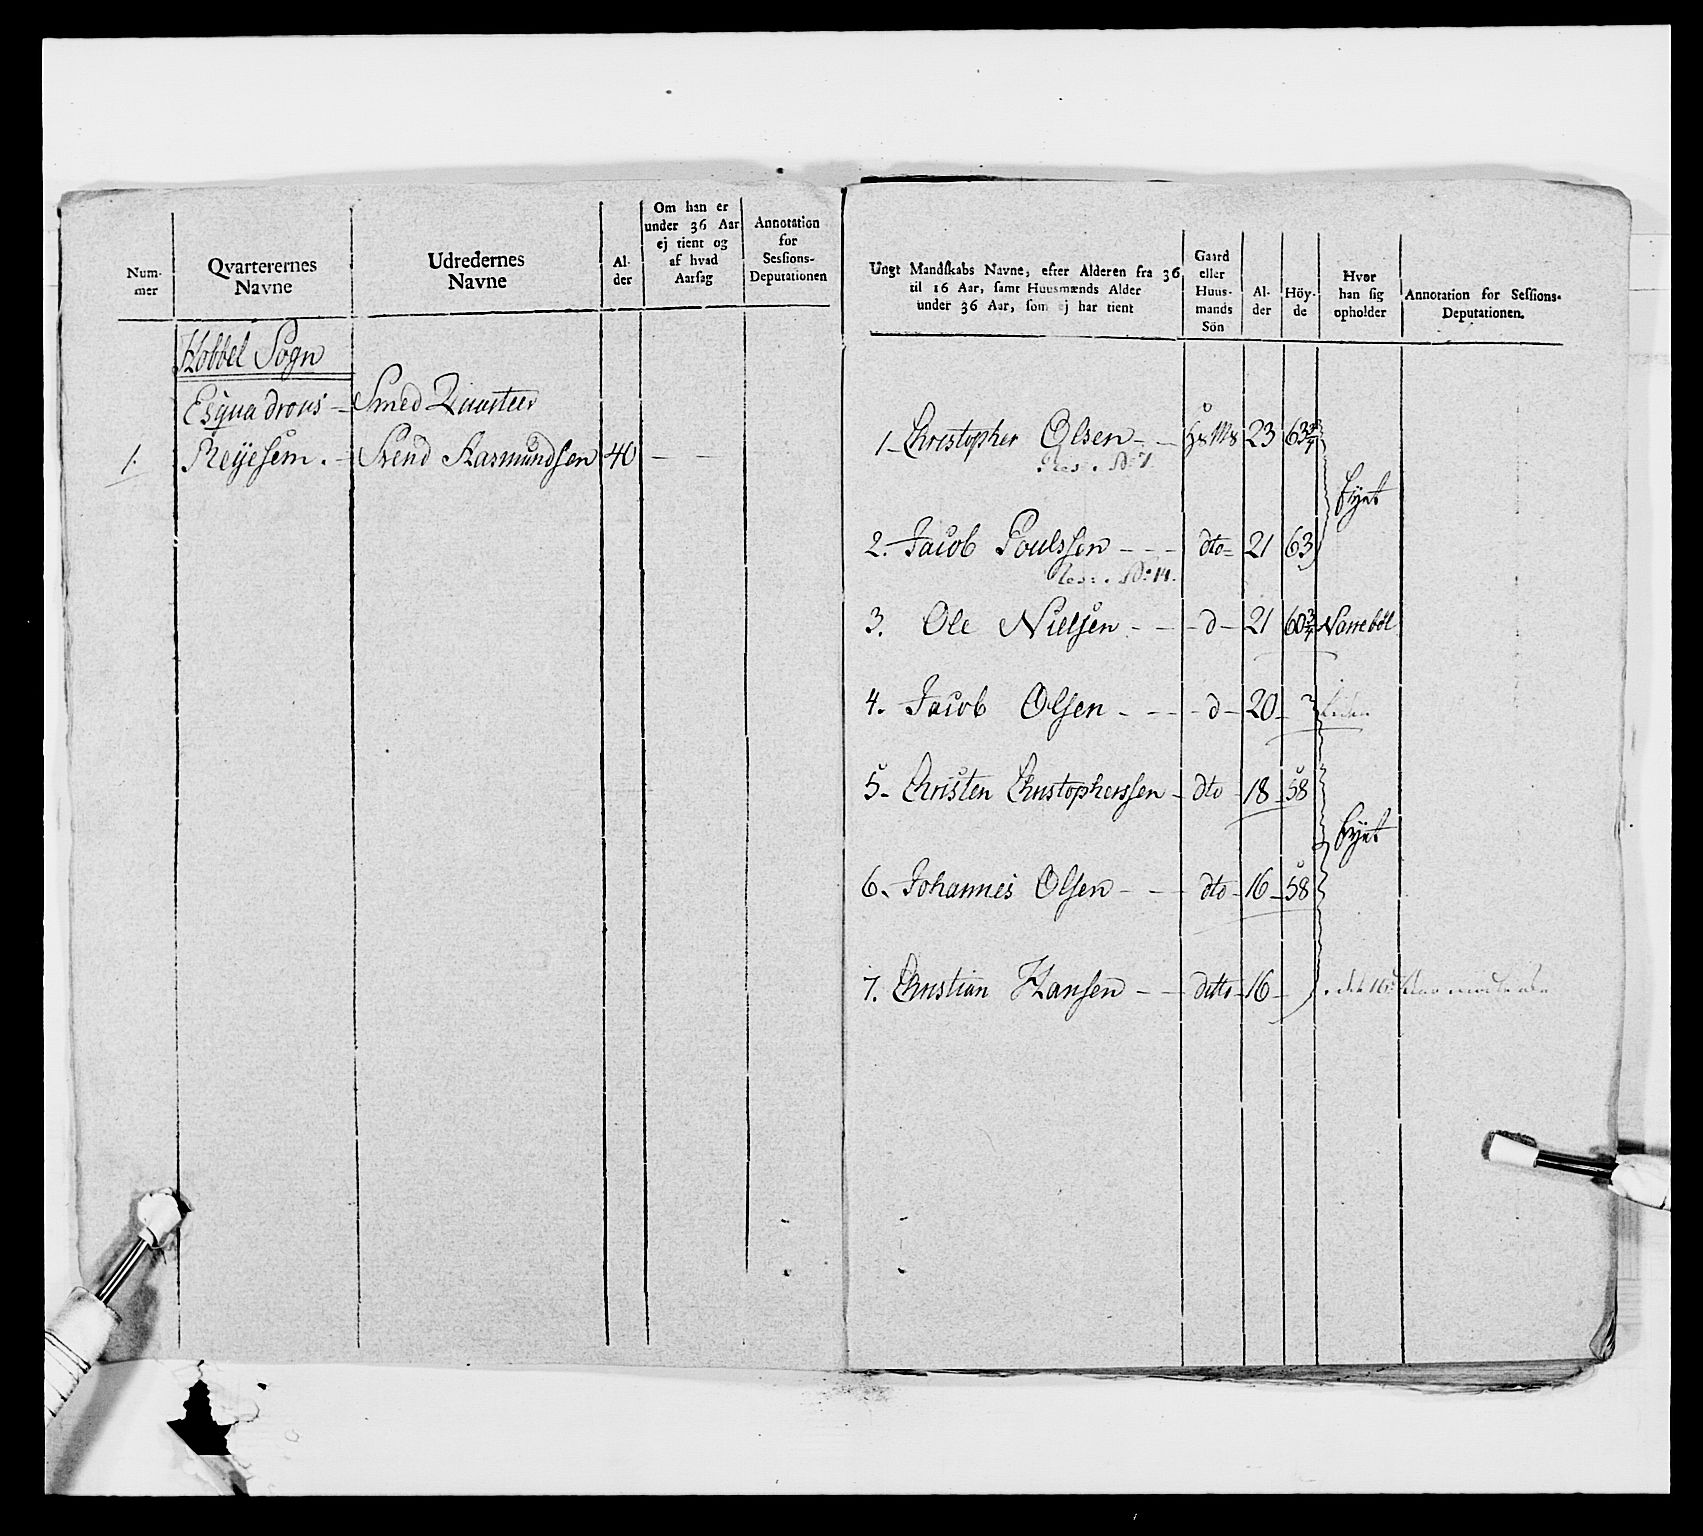 Num-
mer
Qvarterernes
Navne
Udredernes
Navne
Al-
der
Om han er
under 36 Aar
ej tient og
af hvad
Aarsag
Annotation
for
Sessions-
Deputationen
Hobbel Sogn
Esquadrons — Smed Quarteer
1. Reijesem. — Svend Aasmundsen 40 — —
Ungt Mandskabs Navne, efter Alderen fra 36
til 16 Aar, samt Huusmænds Alder
under 36 Aar, som ej har tient
Gaard
eller
Huus-
mands
Sön
Al-
der
Höy-
de
Hvor
han sig
opholder
Annotation for Sessions-
Deputationen.
1 Christopher Olsen — — 23 63¾
Res. No 7.
bÿet
2. Jacob Poulssen — — — dto 21 63
Res. No 14.
3. Ole Nielsen — — d — 21 60¾ Narrebøl
4. Jacob Olsen — — — d — 20
5. Christen Christopherssen — dto — 18 58
bÿet
6. Johannes Olsen — — dto — 16 58
7. Christian Hansen — — ditto 16